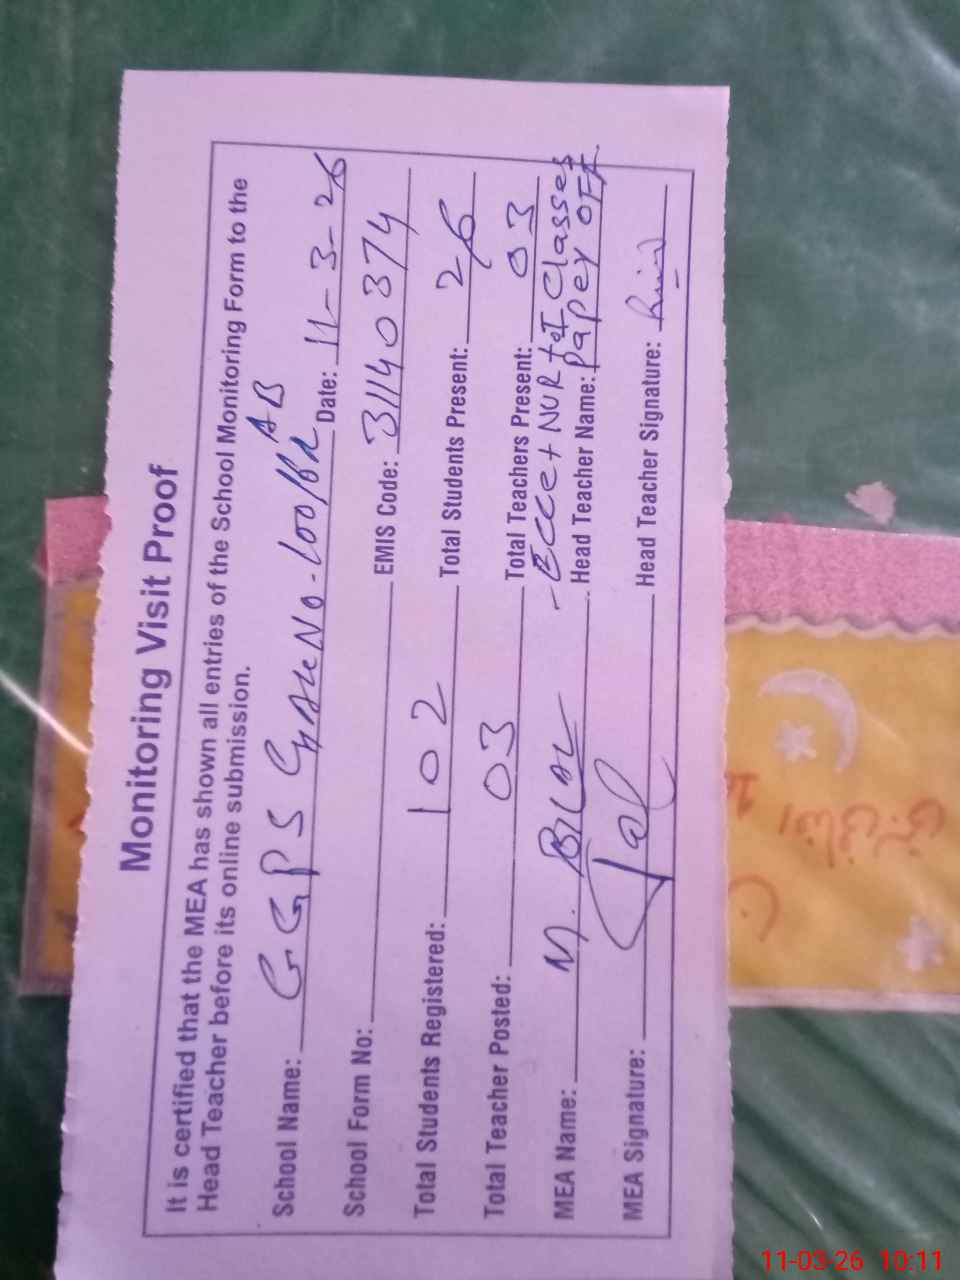 Monitoring Visit Proof
It is certified that the MEA has shown all entries of the School Monitoring Form to the
Head Teacher before its online submission.
School Name: GGPS No-100/6R AB Date: 11-3-26
School Form No: EMIS Code: 31140374
Total Students Registered: 102 Total Students Present: 26
Total Teacher Posted: 03 Total Teachers Present: 03
- Ecce+NUR to I Classes
MEA Name: M. BILAL Head Teacher Name: Paper OFF.
MEA Signature: Head Teacher Signature:
11-03-26 10:11